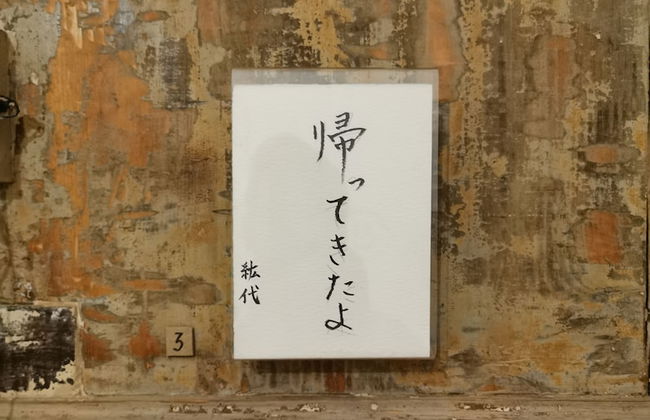 帰ってきたよ
紘代
3